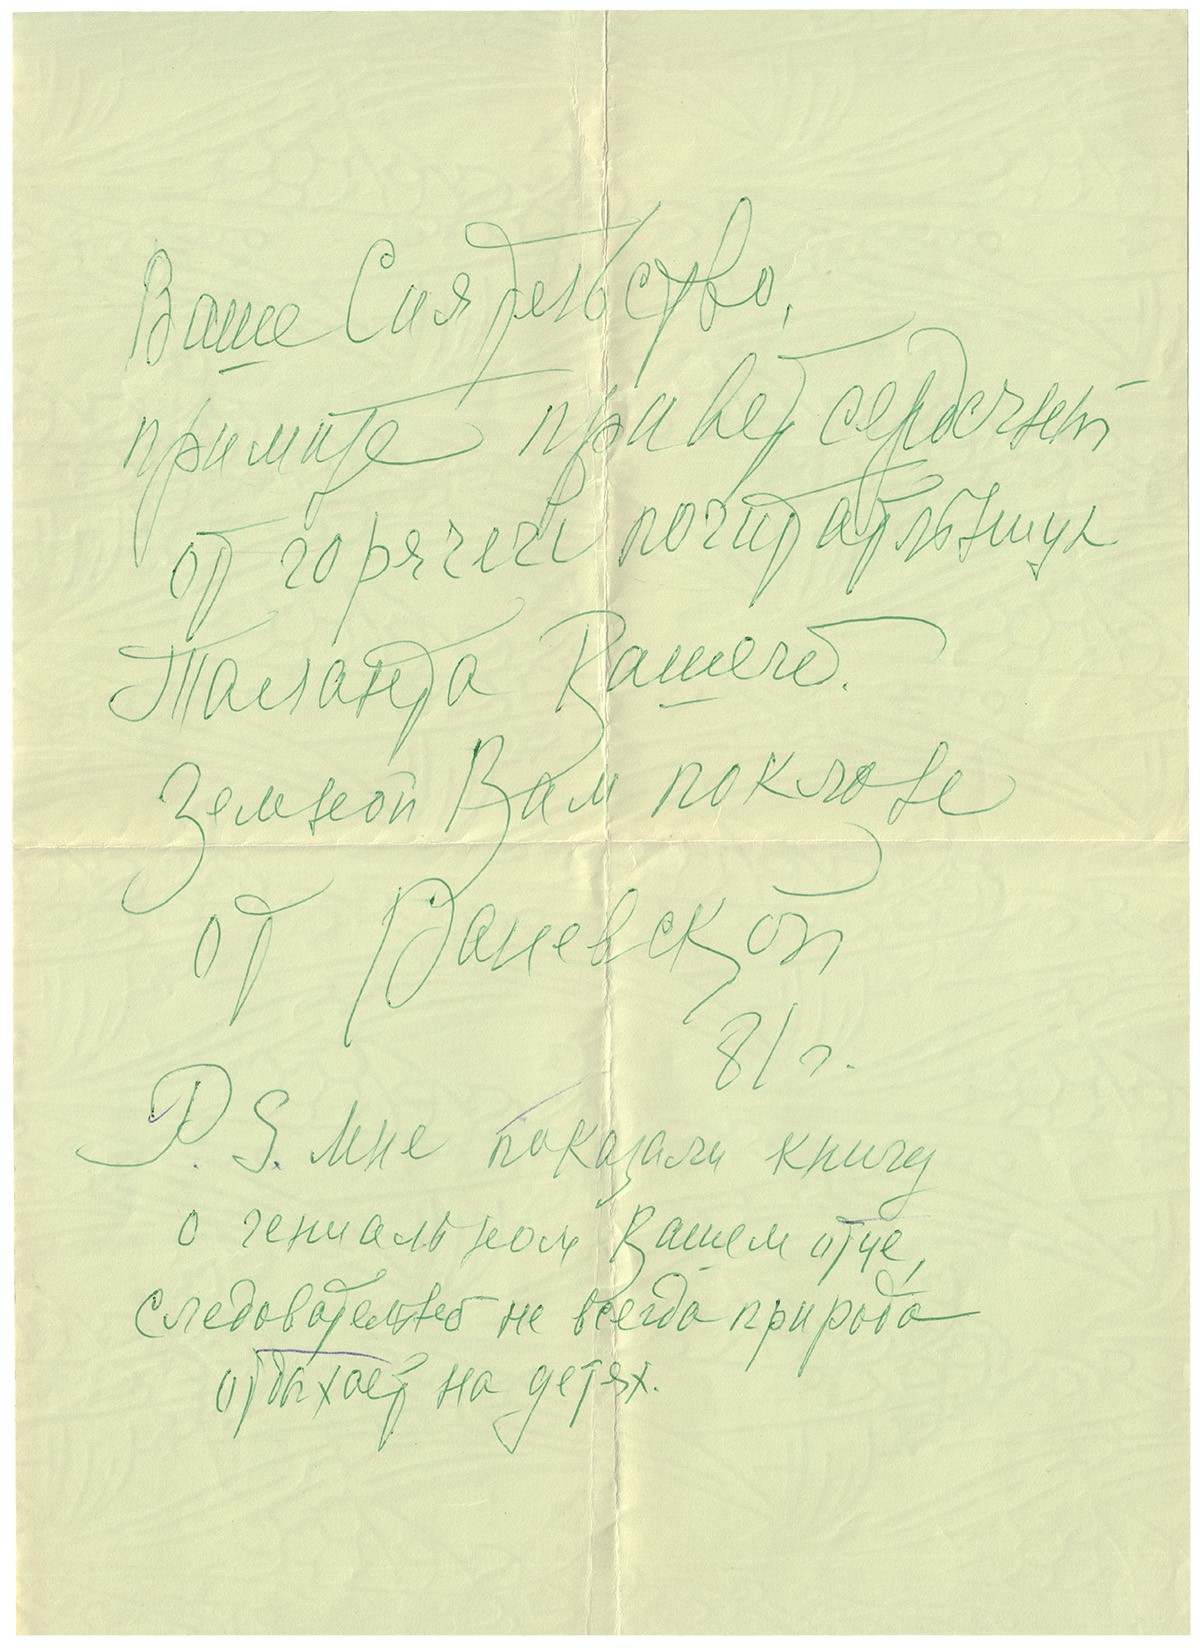 Ваше Сиятельство,
примите привет сердечный
от горячей почитательницы
Таланта Вашего.
Земной Вам поклон
от Раневской
81 г.
P.S. Мне показали книгу
о гениальном Вашем отце,
следовательно не всегда природа
отдыхает на детях.